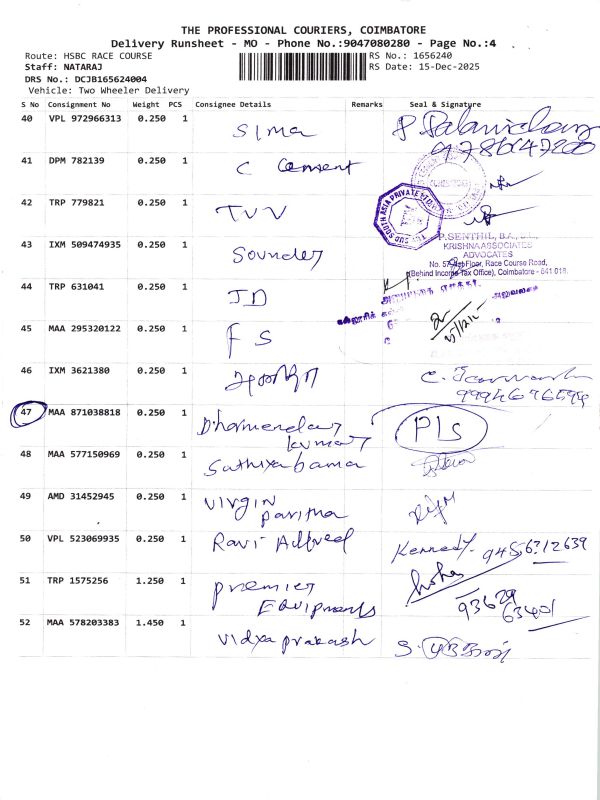 THE PROFESSIONAL COURIERS, COIMBATORE
Delivery Runsheet - MO - Phone No.:9047080280 - Page No.:4
Route: HSBC RACE COURSE RS No.: 1656240
Staff: NATARAJ RS Date: 15-Dec-2025
DRS No.: DCJB165624004
Vehicle: Two Wheeler Delivery
S No Consignment No Weight PCS Consignee Details Remarks Seal & Signature
40 VPL 972966313 0.250 1 Sima
41 DPM 782139 0.250 1 C Cement
42 TRP 779821 0.250 1 TVV
43 IXM 509474935 0.250 1 Sounder
P.SENTHIL, B.A., B.L.,
KRISHNA ASSOCIATES
ADVOCATES
No. 57, 1st Floor, Race Course Road,
(Behind Income Tax Office), Coimbatore - 641 018.
44 TRP 631041 0.250 1 JD
45 MAA 295320122 0.250 1 FS
46 IXM 3621380 0.250 1
47 MAA 871038818 0.250 1 Dharmendar kumar PLS
48 MAA 577150969 0.250 1 Sathiyabama
49 AMD 31452945 0.250 1 Virgin
50 VPL 523069935 0.250 1 Ravi Alfred Kennedy. 9456712639
51 TRP 1575256 1.250 1 Premier
Equipments 93629
63401
52 MAA 578203383 1.450 1 Vidya prakash